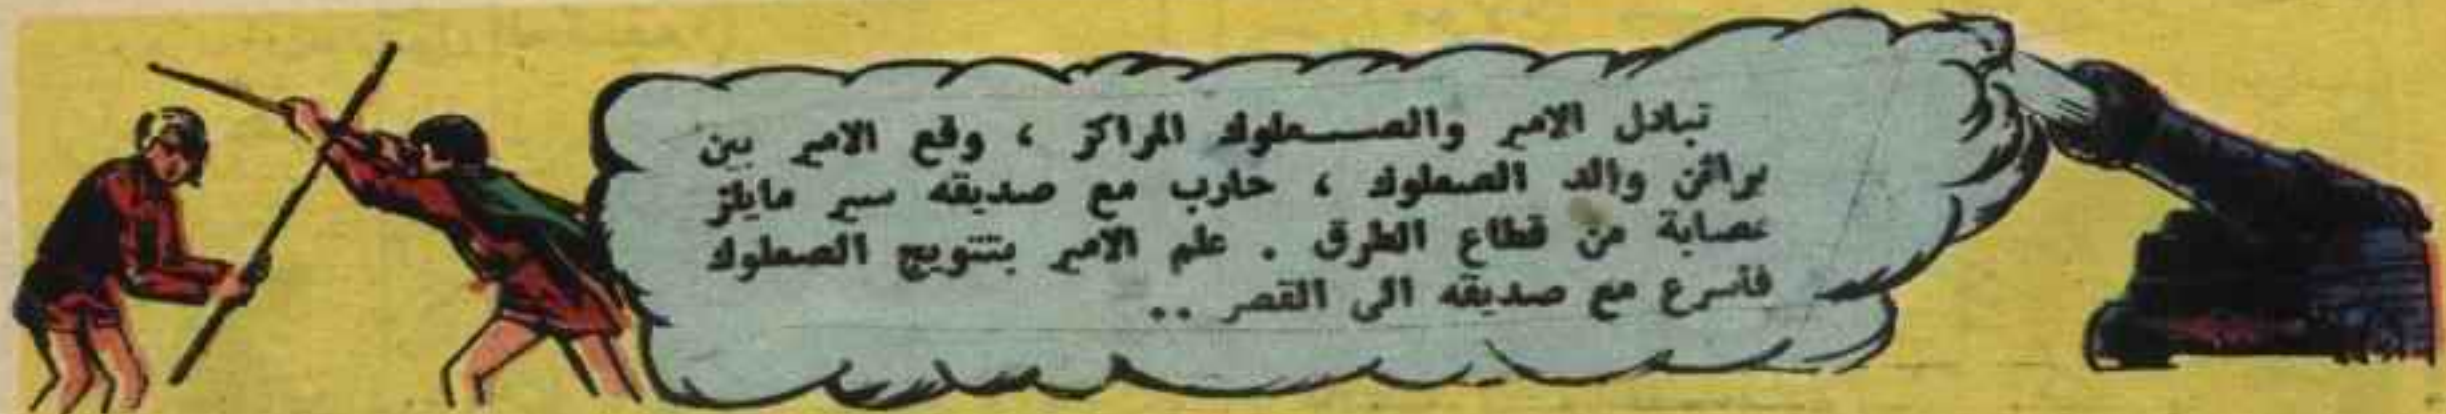 تبادل الامير والصعلوك المراكز ، وقع الامير بين
براثن والد الصعلوك ، حارب مع صديقه سير مايلز
عصابة من قطاع الطرق . علم الامير بتتويج الصعلوك
فأسرع مع صديقه الى القصر ..